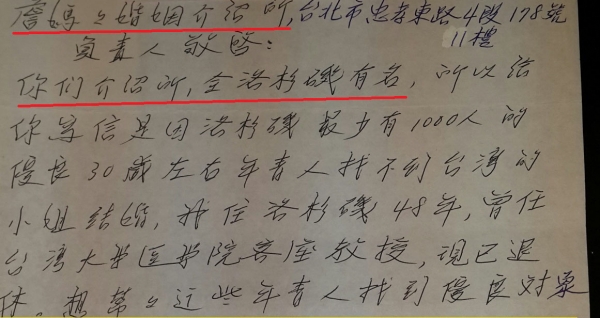 詹媽媽婚姻介紹所,台北市忠孝東路4段178號
11樓
負責人敬啓:
你们介紹所,全洛杉磯有名,所以給
你写信是因洛杉磯最少有1000人的
優良30歲左右年青人找不到台湾的
小姐結婚,我住洛杉磯48年,曾任
台湾大学医学院客座教授,現已退
休,想幫々这些年青人找到優良对象